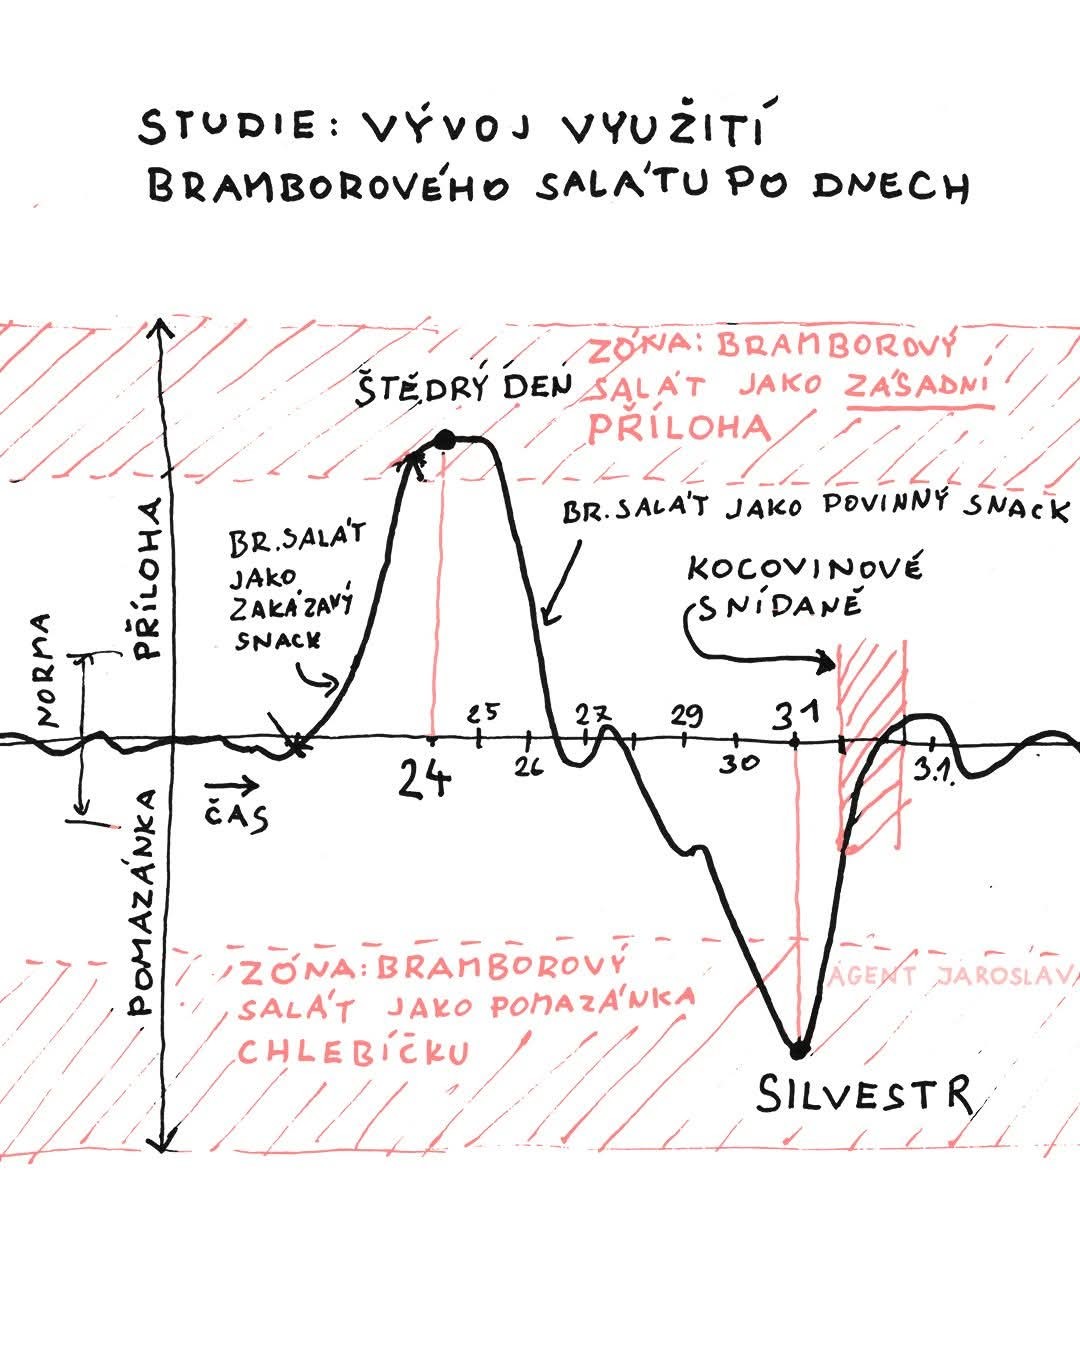 STUDIE: VÝVOJ VYUŽITÍ
BRAMBOROVÉHO SALÁTU PO DNECH
ZÓNA: BRAMBOROVÝ
SALÁT JAKO ZÁSADNÍ
PŘÍLOHA
ŠTĚDRÝ DEN
BR. SALÁT JAKO POVINNÝ SNACK
BR. SALÁT
JAKO
ZAKÁZAVÝ
SNACK
KOCOVINOVÉ
SNÍDANĚ
PŘÍLOHA
NORMA
POMAZÁNKA
ČAS
24
25
26
27
29
30
31
3.1.
ZÓNA: BRAMBOROVÝ
SALÁT JAKO POMAZÁNKA
CHLEBÍČKU
AGENT JAROSLAV
SILVESTR